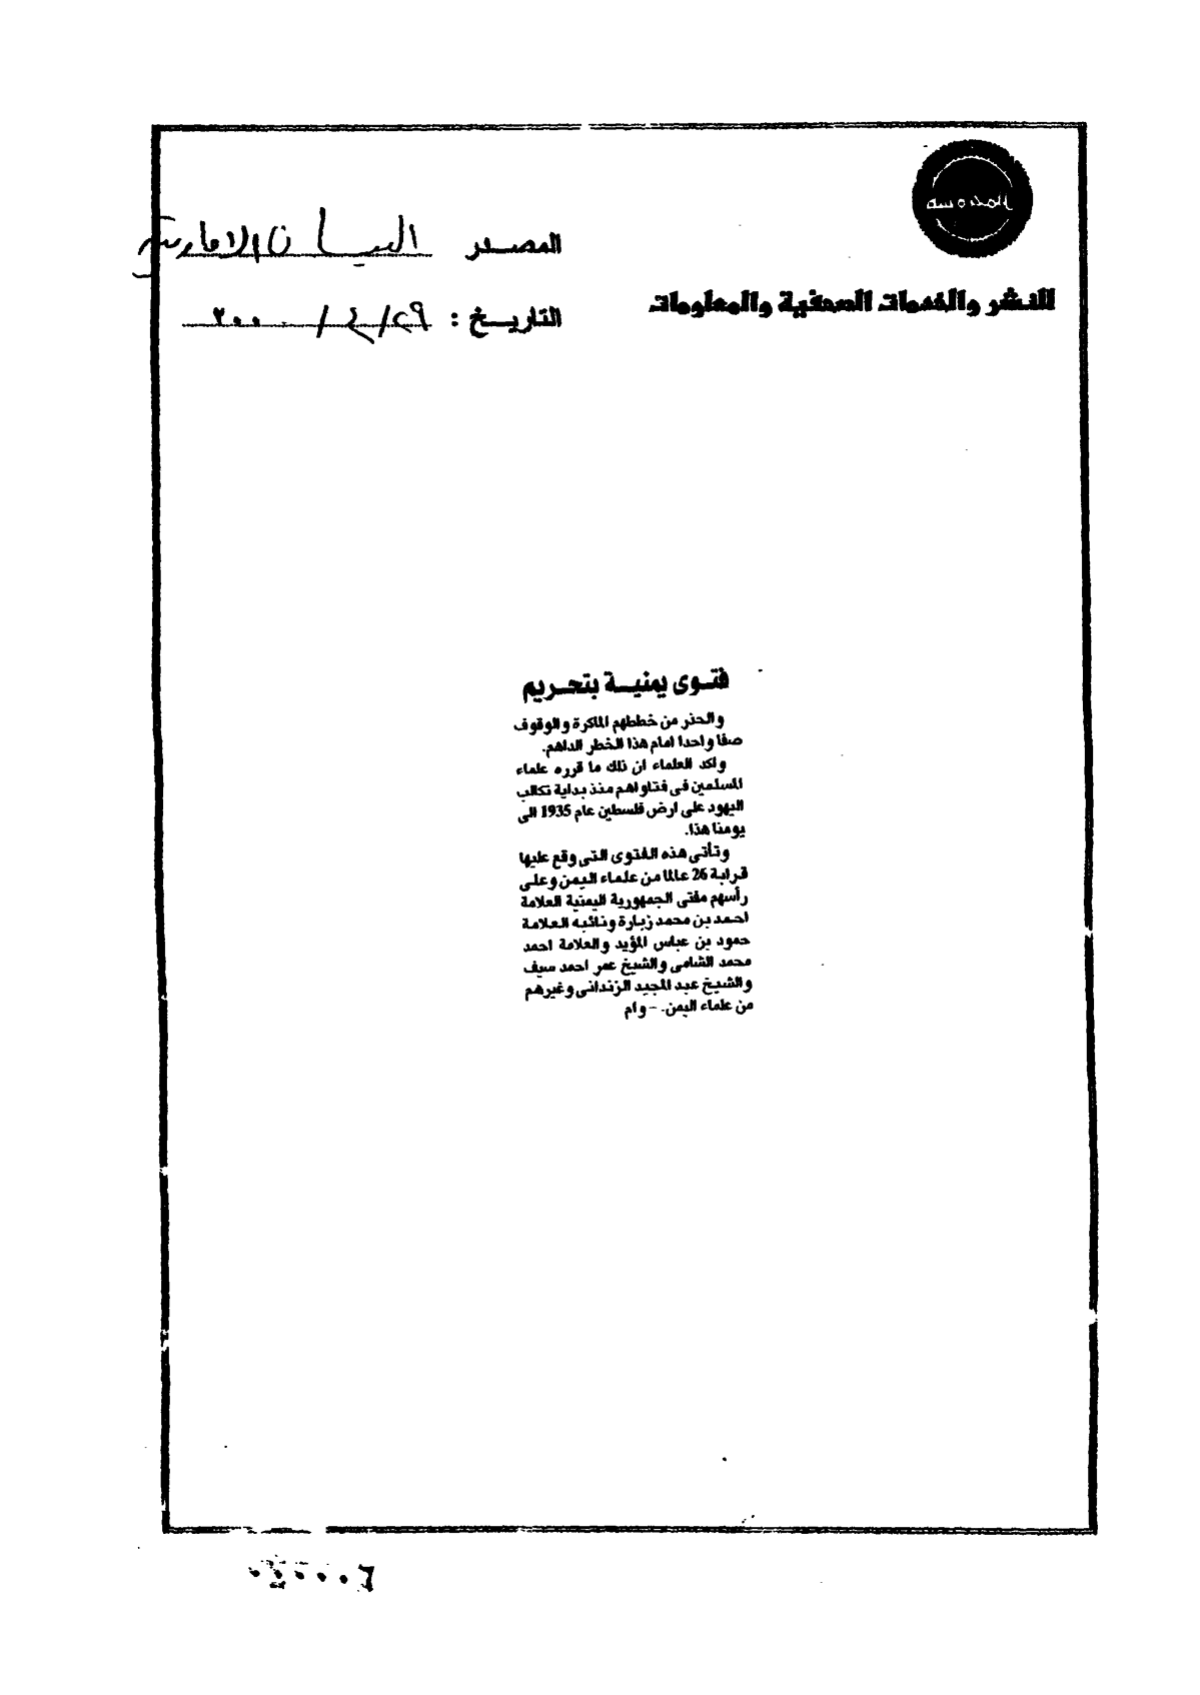 المصدر البيان الاماراتية
للنشر والخدمات الصحفية والمعلومات
التاريخ : ٢٩/٤/٢٠٠٠
فتوى يمنية بتحريم
والحذر من خططهم الماكرة والوقوف
صفا واحدا امام هذا الخطر الداهم.
واكد العلماء ان ذلك ما قرره علماء
المسلمين فى فتاواهم منذ بداية تكالب
اليهود على ارض فلسطين عام 1935 الى
يومنا هذا.
وتأتى هذه الفتوى التى وقع عليها
قرابة 26 عالما من علماء اليمن وعلى
رأسهم مفتى الجمهورية اليمنية العلامة
احمد بن محمد زبارة ونائبه العلامة
حمود بن عباس المؤيد والعلامة احمد
محمد الشامى والشيخ عمر احمد سيف
والشيخ عبد المجيد الزندانى وغيرهم
من علماء اليمن. - وام